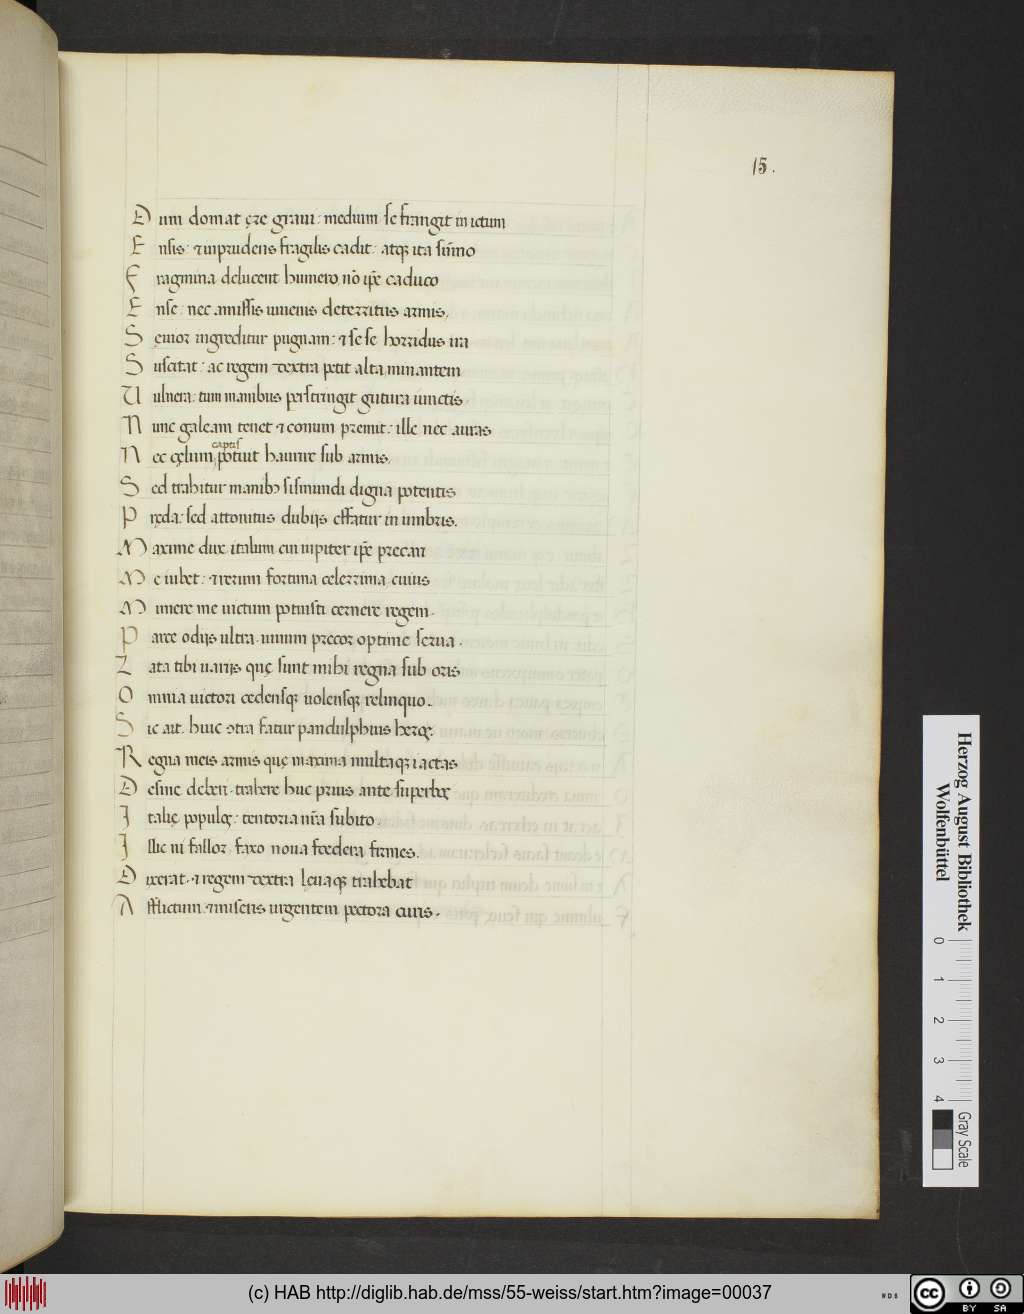 15.
Dum domat ęre graui: medium se frangit in ictum
Ensis: & inprudens fragilis cadit: atq; ita sūmo
Fragmina delucent humero, nō ip̄e caduco
Ense: nec amissis iuuenis deterritus armis,
Sęuior ingreditur pugnam: & sese horridus ira
Suscitat: ac regem dextra petit alta minantem
Vulnera: tum manibus perstringit gutura iunctis
Nunc galeam tenet & conum premit: ille nec auras
captis
Nec cęlum, potiut haurire sub armis,
Sed trahitur manibꝯ sismundi digna potentis
Pręda: sed attonitus dubijs effatur in umbris.
Maxime dux italum cui iupiter ip̄e precari
Me iubet: & rerum fortuna celerrima cuius
Munere me uictum potuisti cernere regem.
Parce odijs ultra. unum precor optime serua.
Lata tibi uarijs quę sunt mihi regna sub oris
Omnia uictori cedensq; uolensq; relinquo.
Sic ait. huic ɔtra fatur pandulphius heros:
Regna meis armis quę maxima multaq; iactas
Desine deberi. trahere huc prius ante superbę
Italię populos: tentoria nr̄a subito.
Illic ni fallor faxo noua foedera firmes.
Dixerat. & regem dextra leuaq; trahebat
Afflictum & miseris urgentem pectora curis.
Herzog August Bibliothek
Wolfenbüttel
0 1 2 3 4
Gray Scale
(c) HAB http://diglib.hab.de/mss/55-weiss/start.htm?image=00037
cc
BY SA